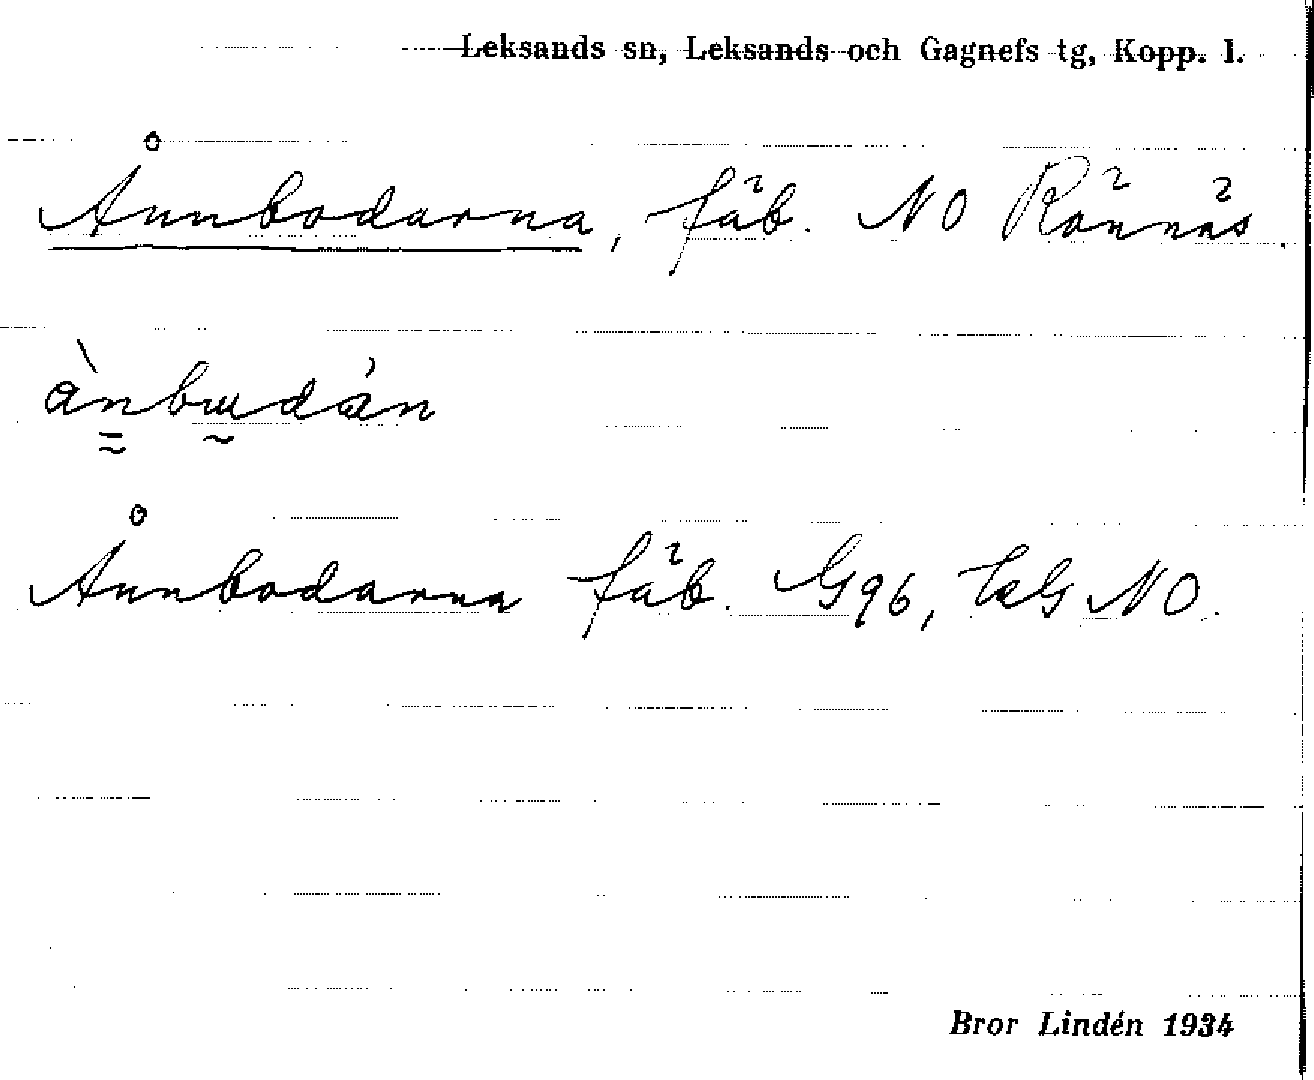 Leksands sn, Leksands och Gagnefs tg, Kopp. l.
Ånnbodarna, fäb. NO Rönnäs.
ànbɯdán
Ånnbodarna fäb. G96, NO.
Bror Lindén 1934